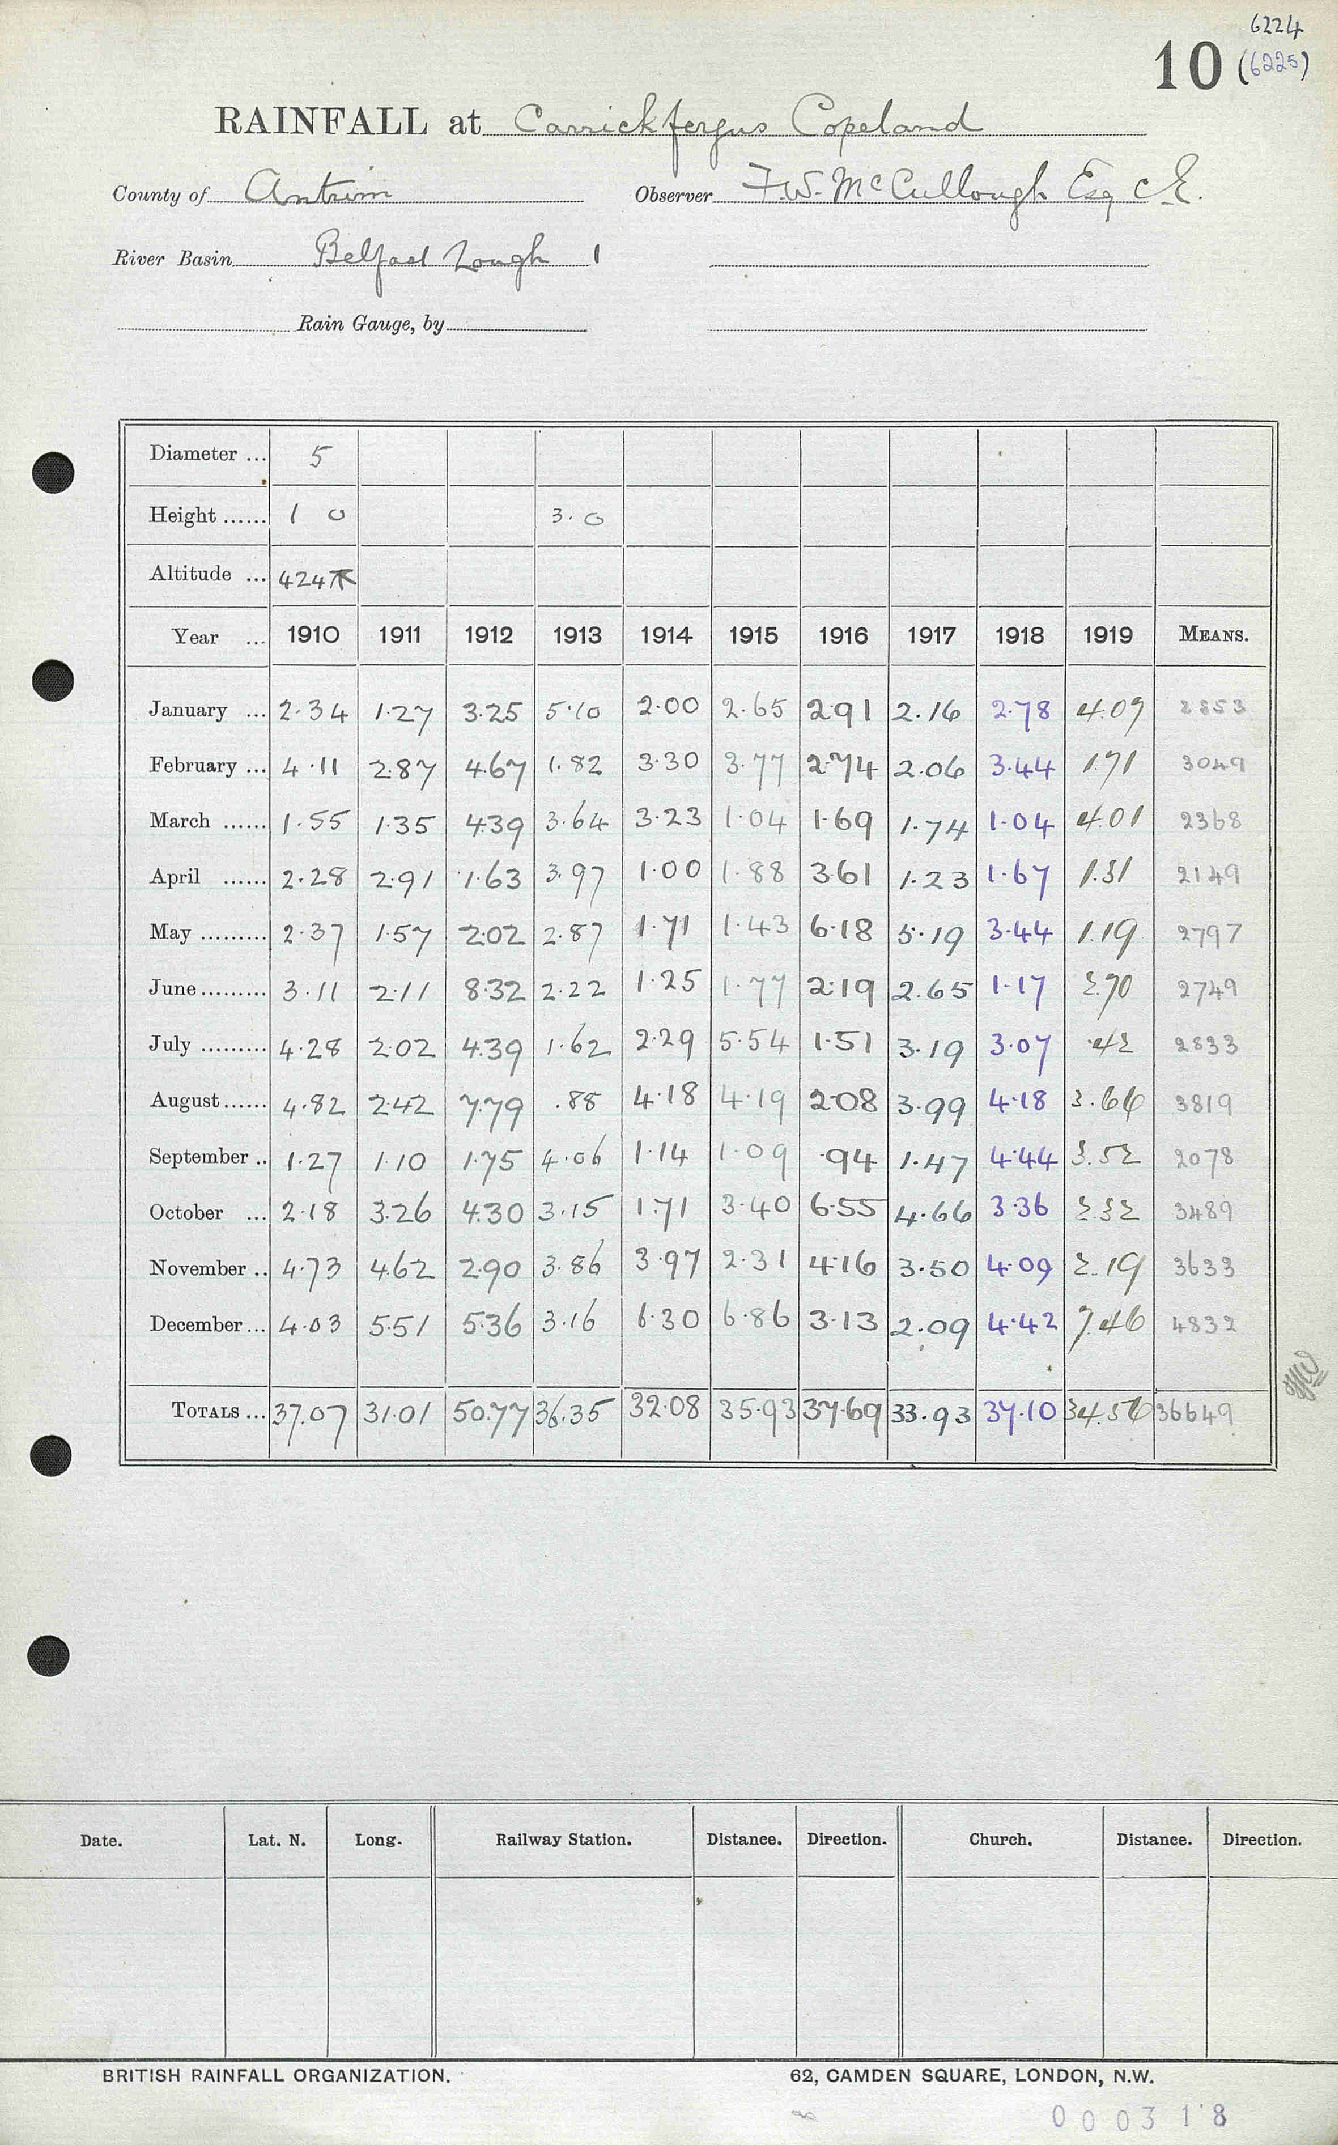 6224
10 (6225)
RAINFALL at Carrickfergus Copeland
County of Antrim Observer F.W. McCullough Esq C.E.
River Basin Belfast Lough 1
Rain Gauge, by
Diameter ... 5
Height ...... 1 0 3.0
Altitude ... 424
Year ... 1910 1911 1912 1913 1914 1915 1916 1917 1918 1919 MEANS.
January ... 2.34 1.27 3.25 5.10 2.00 2.65 2.91 2.16 2.78 4.07 2853
February ... 4.11 2.87 4.67 1.82 3.30 3.77 2.74 2.06 3.44 1.71 3049
March ...... 1.55 1.35 4.39 3.64 3.23 1.04 1.69 1.74 1.04 4.01 2368
April ...... 2.28 2.91 1.63 3.97 1.00 1.88 3.61 1.23 1.67 1.31 2149
May ......... 2.37 1.57 2.02 2.87 1.71 1.43 6.18 5.19 3.44 1.19 2797
June ......... 3.11 2.11 8.32 2.22 1.25 1.77 2.19 2.65 1.17 2.70 2749
July ......... 4.28 2.02 4.39 1.62 2.29 5.54 1.51 3.19 3.07 .42 2833
August ...... 4.82 2.42 7.79 .88 4.18 4.19 2.08 3.99 4.18 3.66 3819
September .. 1.27 1.10 1.75 4.06 1.14 1.09 .94 1.47 4.44 3.52 2078
October ... 2.18 3.26 4.30 3.15 1.71 3.40 6.55 4.66 3.36 2.32 3489
November .. 4.73 4.62 2.90 3.86 3.97 2.31 4.16 3.50 4.09 2.19 3633
December ... 4.03 5.51 5.36 3.16 6.30 6.86 3.13 2.09 4.42 7.46 4832
TOTALS ... 37.07 31.01 50.77 36.35 32.08 35.93 37.69 33.93 37.10 34.56 36649
Date. Lat. N. Long. Railway Station. Distance. Direction. Church. Distance. Direction.
BRITISH RAINFALL ORGANIZATION. 62, CAMDEN SQUARE, LONDON, N.W.
000318